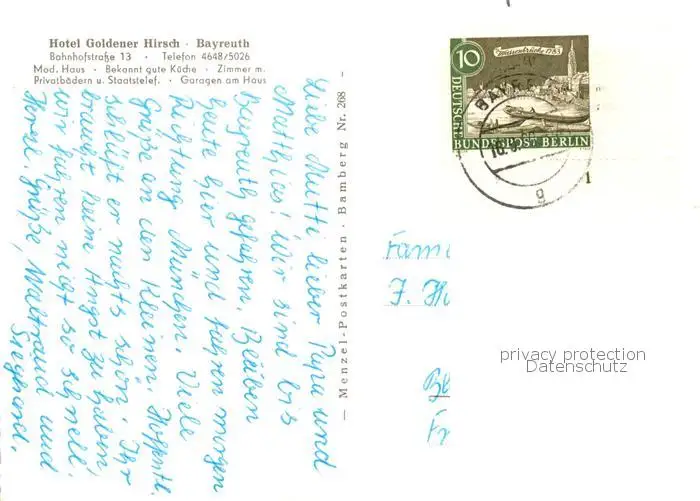 Hotel Goldener Hirsch · Bayreuth
Bahnhofstraße 13 · Telefon 4648/5026
Mod. Haus · Bekannt gute Küche · Zimmer m.
Privatbädern u. Staatstelef. · Garagen am Haus
Liebe Mutti lieber Papa und
Matthias! Wir sind bis
Bayreuth gefahren. Bleiben
heute hier und fahren morgen
Richtung München. Viele
Grüße an den Kleinen. Hoffentl.
schläft er nachts schön. Ihr
braucht keine Angst zu haben,
wir fahren nicht so schnell.
Herzl. Grüße, Waltraud und
Sieghard.
— Menzel-Postkarten · Bamberg Nr. 268 —
10
Messenbrücke 1783
DEUTSCHE
BUNDESPOST BERLIN
BAY
g
1
Fami
J. Th
privacy protection
Datenschutz